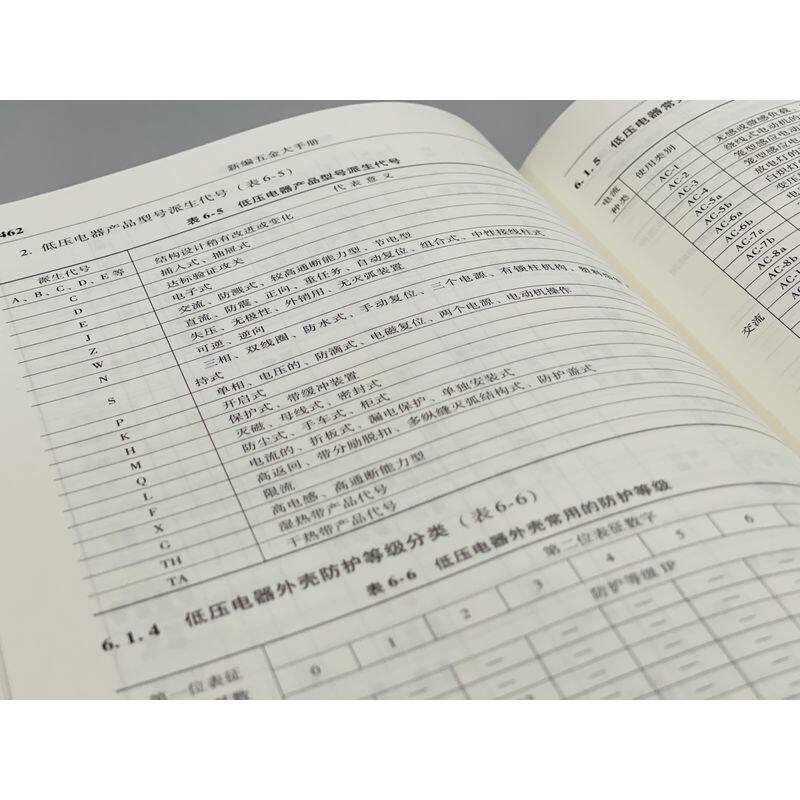 新编五金大手册
462
2. 低压电器产品型号派生代号（表6-5）
表6-5 低压电器产品型号派生代号
派生代号 代表意义
A、B、C、D、E等 结构设计稍有改进或变化
C 插入式、抽屉式
D 达标验证攻关
E 电子式
J 交流、防溅式、较高通断能力型、节电型
Z 直流、防震、正向、重任务、自动复位、组合式、中性接线柱式
W 失压、无极性、外销用、无灭弧装置
N 可逆、逆向
S 三相、双线圈、防水式、手动复位、三个电源、有锁柱机构、塑料熔管
持式
P 单相、电压的、防滴式、电磁复位、两个电源、电动机操作
K 开启式
H 保护式、带缓冲装置
M 灭磁、母线式、密封式
Q 防尘式、手车式、柜式
L 电流的、折板式、漏电保护、单独安装式
F 高返回、带分励脱扣、多纵缝灭弧结构式、防护盖式
X 限流
G 高电感、高通断能力型
TH 湿热带产品代号
TA 干热带产品代号
6.1.4 低压电器外壳防护等级分类（表6-6）
表6-6 低压电器外壳常用的防护等级
第一位表征 第一位表征数字
0 1 2 3 4 5 6
防护等级 IP
6.1.5 低压电器常
电流
种类
使用类别
AC-1 无感或微感负载、
AC-2 绕线式电动机的
AC-3 笼型感应电动
AC-4 笼型感应电动
AC-5a 放电灯的
AC-5b 白炽灯
AC-6a 变压
AC-6b
AC-7a
AC-7b
AC-8a
AC-8b
交流